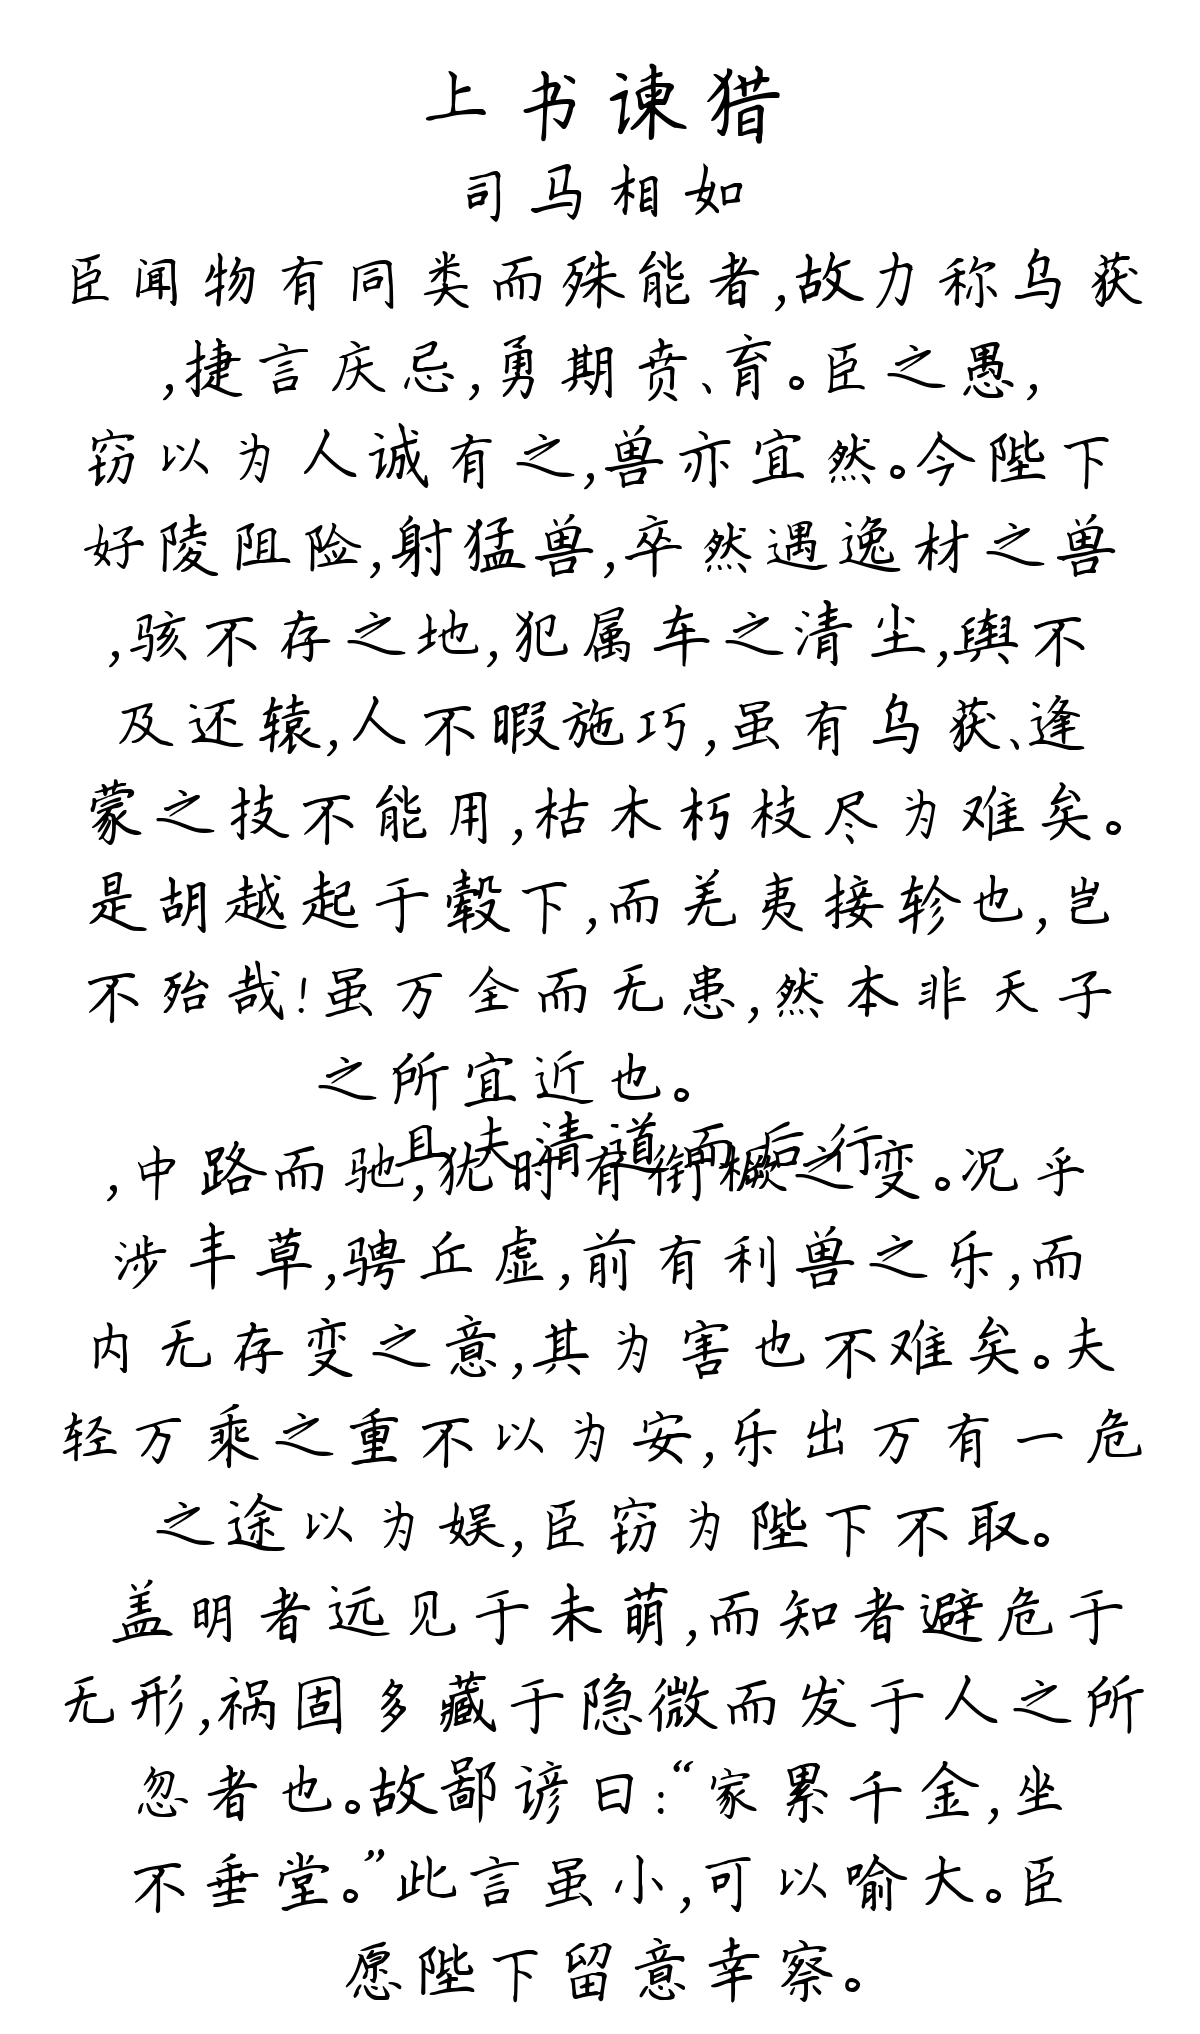 上书谏猎
司马相如
臣闻物有同类而殊能者,故力称乌获
,捷言庆忌,勇期贲、育。臣之愚,
窃以为人诚有之,兽亦宜然。今陛下
好陵阻险,射猛兽,卒然遇逸材之兽
,骇不存之地,犯属车之清尘,舆不
及还辕,人不暇施巧,虽有乌获、逢
蒙之技不能用,枯木朽枝尽为难矣。
是胡越起于毂下,而羌夷接轸也,岂
不殆哉!虽万全而无患,然本非天子
之所宜近也。
且夫清道而后行
,中路而驰,犹时有衔橛之变。况乎
涉丰草,骋丘虚,前有利兽之乐,而
内无存变之意,其为害也不难矣。夫
轻万乘之重不以为安,乐出万有一危
之途以为娱,臣窃为陛下不取。
盖明者远见于未萌,而知者避危于
无形,祸固多藏于隐微而发于人之所
忽者也。故鄙谚曰:“家累千金,坐
不垂堂。”此言虽小,可以喻大。臣
愿陛下留意幸察。